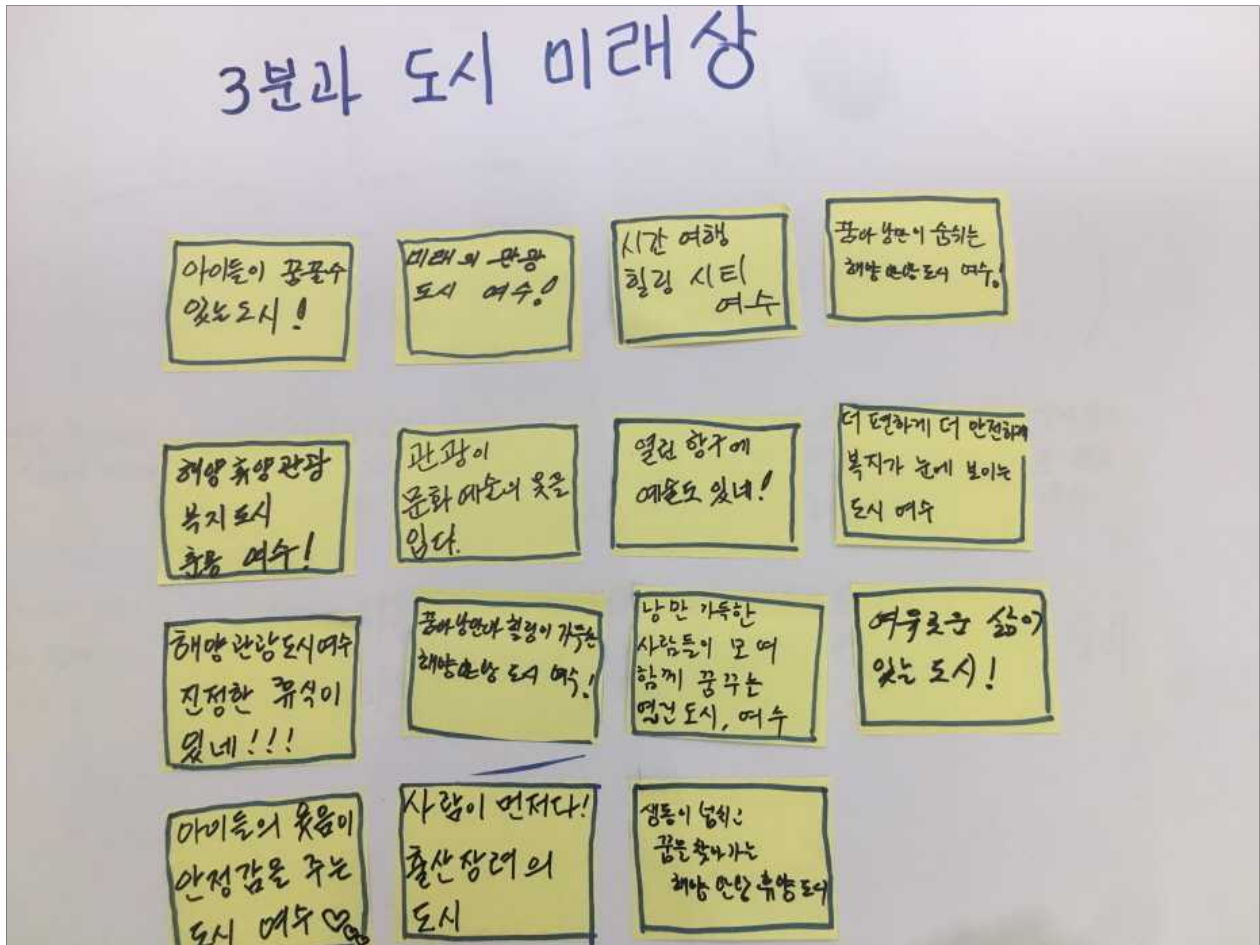 3분과 도시 미래상
아이들이 꿈꿀수
있는도시!
미래의 관광
도시 여수!
시간 여행
힐링 시티
여수
꿈과 낭만이 숨쉬는
해양관광도시 여수!
해양휴양관광
복지도시
여수!
관광이
문화예술의 옷을
입다.
열린 항구에
예술도 있네!
더 편하게 더 안전하게
복지가 눈에 보이는
도시 여수
해양관광도시여수
진정한 휴식이
있네!!!
꿈과 낭만과 힐링이 가득한
해양관광 도시 여수!
낭만 가득한
사람들이 모여
함께 꿈꾸는
도시, 여수
여유로운 삶이
있는 도시!
아이들의 웃음이
안정감을 주는
도시 여수♡♡♡
사람이 먼저다!
출산장려의
도시
생동이
꿈을 찾아가는
해양 휴양도시